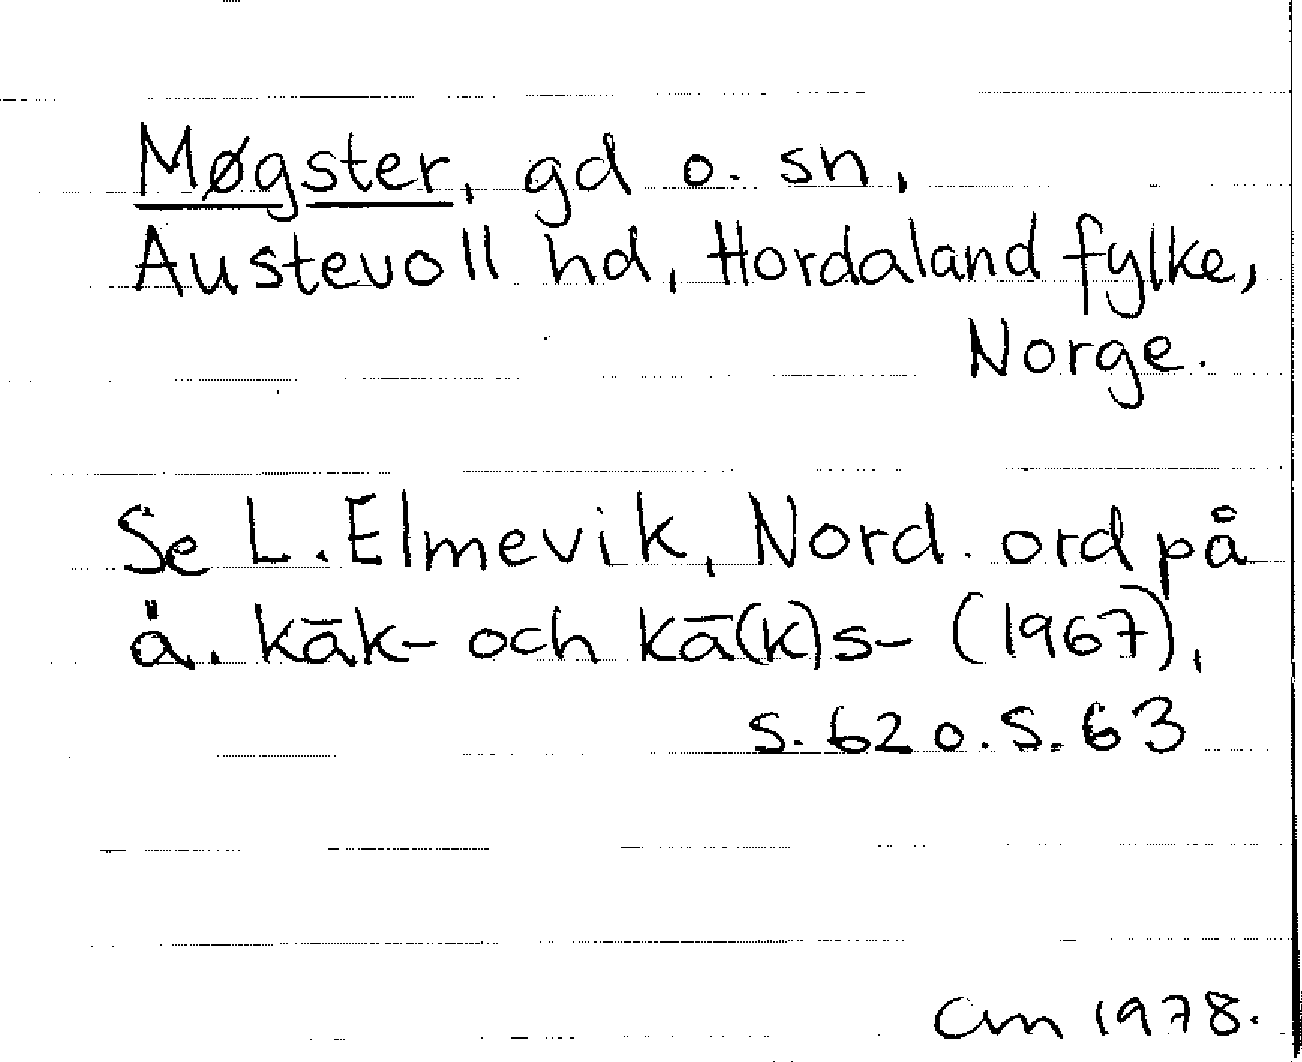 Møgster, gd o. sn,
Austevoll hd, Hordaland fylke,
Norge.
Se L. Elmevik, Nord. ord på
ä. kāk- och kā(k)s- (1967),
s. 62 o. s. 63
CM 1978.